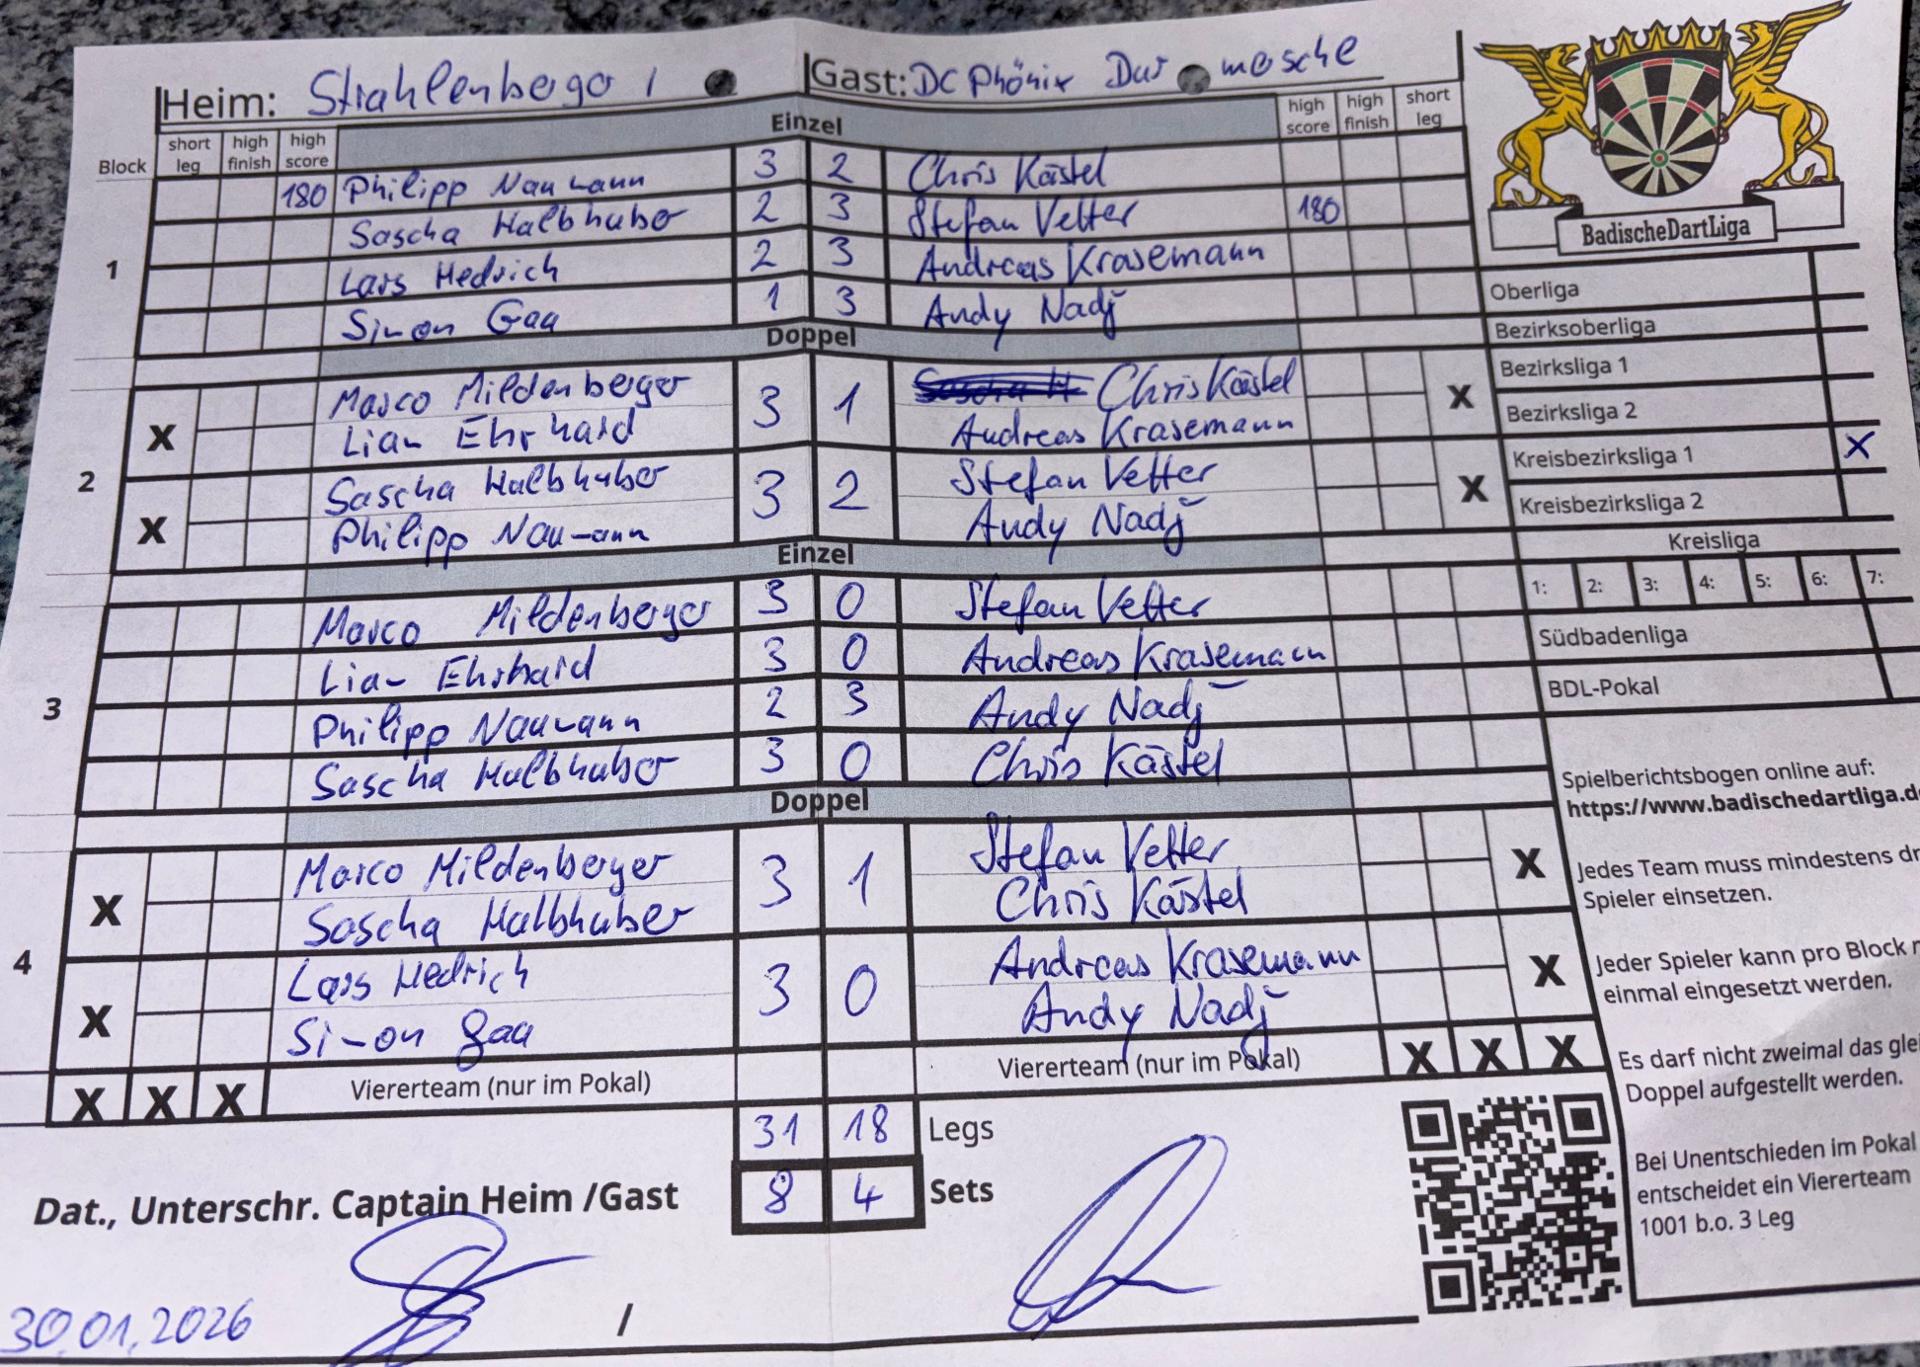 Heim: Strahlenberger 1 Gast: DC Phönix Dur mesche
Block short leg high finish high score Einzel high score high finish short leg
1
180 Philipp Naumann 3 2 Chris Kästel
Sascha Halbhuber 2 3 Stefan Vetter 180
Lars Hedrich 2 3 Andreas Krasemann
Simon Gaa 1 3 Andy Nadj
Doppel
2
X Marco Mildenberger 3 1 Chris Kästel X
Lian Ehrhard Andreas Krasemann
X Sascha Halbhuber 3 2 Stefan Vetter X
Philipp Naumann Andy Nadj
Einzel
3
Marco Mildenberger 3 0 Stefan Vetter
Lian Ehrhard 3 0 Andreas Krasemann
Philipp Naumann 2 3 Andy Nadj
Sascha Halbhuber 3 0 Chris Kästel
Doppel
4
X Marco Mildenberger 3 1 Stefan Vetter X
Sascha Halbhuber Chris Kästel
X Lars Hedrich 3 0 Andreas Krasemann X
Simon Gaa Andy Nadj
X X X Viererteam (nur im Pokal) Viererteam (nur im Pokal) X X X
31 18 Legs
8 4 Sets
Dat., Unterschr. Captain Heim /Gast
30.01.2026 /
BadischeDartLiga
Oberliga
Bezirksoberliga
Bezirksliga 1
Bezirksliga 2
Kreisbezirksliga 1 X
Kreisbezirksliga 2
Kreisliga
1: 2: 3: 4: 5: 6: 7:
Südbadenliga
BDL-Pokal
Spielberichtsbogen online auf:
https://www.badischedartliga.d
Jedes Team muss mindestens dr
Spieler einsetzen.
Jeder Spieler kann pro Block
einmal eingesetzt werden.
Es darf nicht zweimal das glei
Doppel aufgestellt werden.
Bei Unentschieden im Pokal
entscheidet ein Viererteam
1001 b.o. 3 Leg